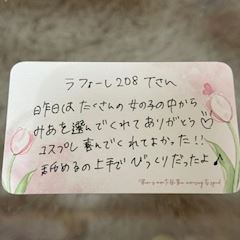 ラフォーレ208 Tさん
昨日はたくさんの女の子の中から
みあを選んでくれてありがとう♡
コスプレ喜んでくれてよかった!!
舐めるの上手でびっくりだったよ♪